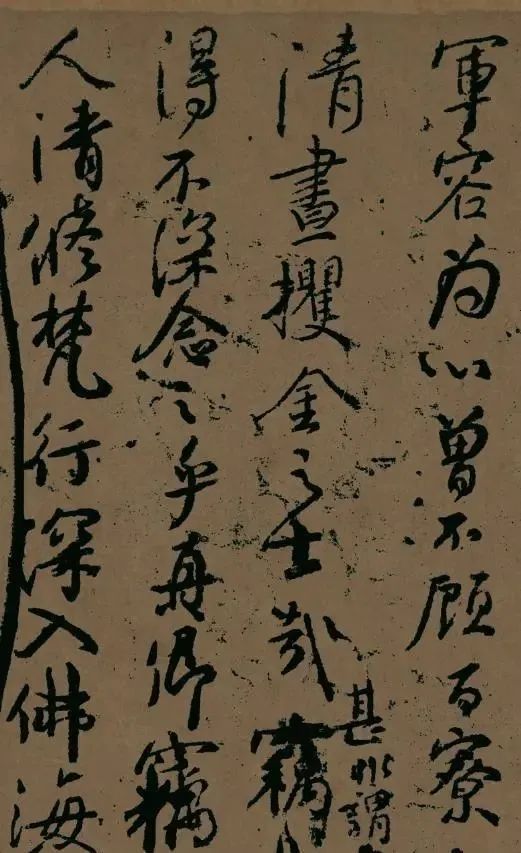 軍容为心曾不顧百寮
清晝攫金之士哉竊
甚非謂
得不深念之乎真卿竊
人清修梵行深入佛海